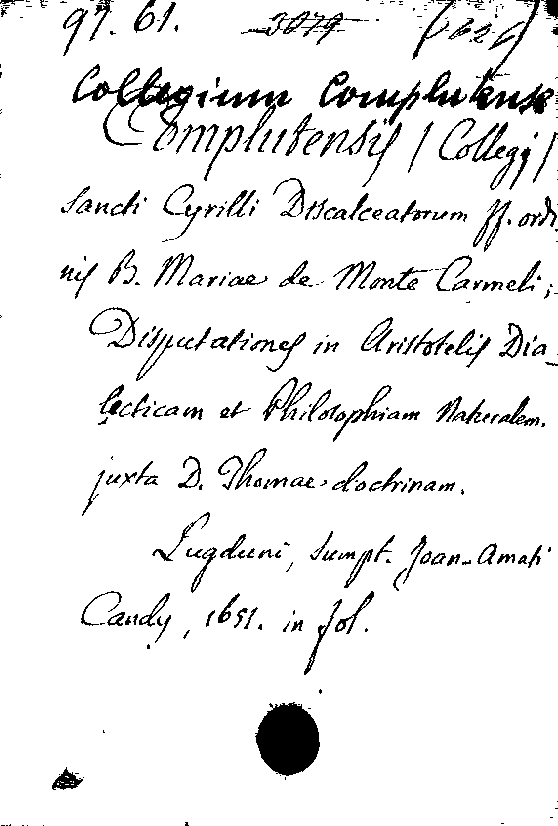 97. 61. 3079
Collegium Complutense
Complutensis / Collegij /
Sancti Cyrilli Discalceatorum ff. ordi
nis B. Mariae de Monte Carmeli;
Disputationes in Aristotelis Dia_
lecticam et Philosophiam Naturalem.
juxta D. Thomae doctrinam.
Lugduni, sumpt. Joan-Amati
Candy, 1651. in fol.